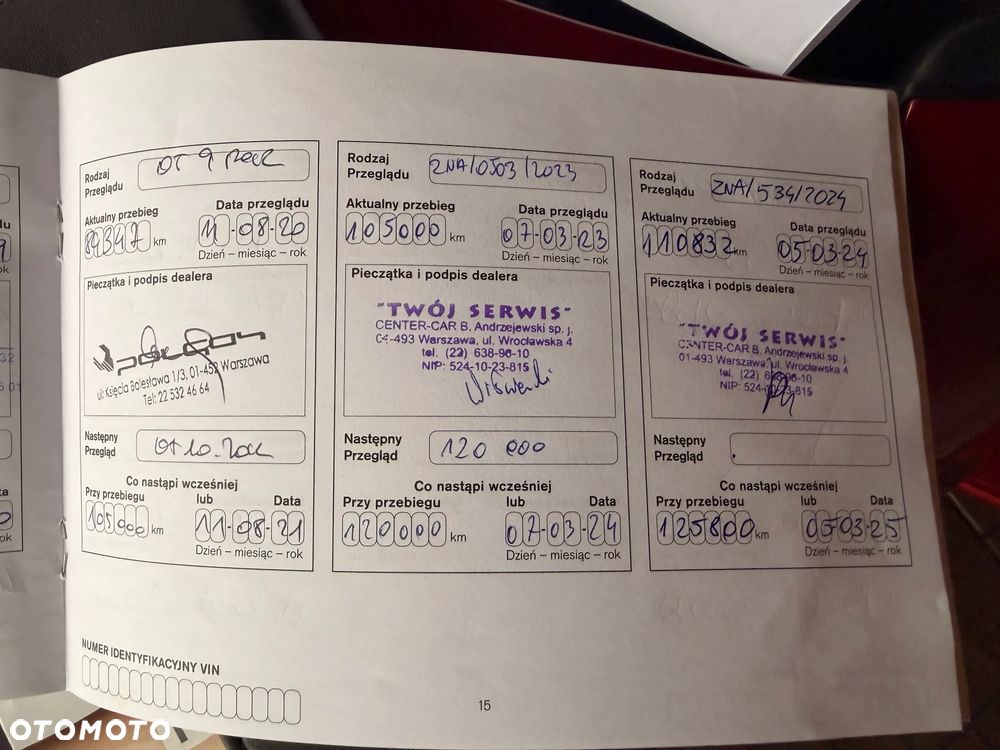 Rodzaj Przeglądu
OT 9
Aktualny przebieg
Data przeglądu
89347 km
11-08-20
Dzień – miesiąc – rok
Pieczątka i podpis dealera
ul. Księcia Bolesława 1/3, 01-452 Warszawa
Tel: 22 532 46 64
Następny Przegląd
OT 10
Co nastąpi wcześniej
Przy przebiegu
lub
Data
105000 km
11-08-21
Dzień – miesiąc – rok
Rodzaj Przeglądu
ZNA/0503/2023
Aktualny przebieg
Data przeglądu
105000 km
07-03-23
Dzień – miesiąc – rok
Pieczątka i podpis dealera
"TWÓJ SERWIS"
CENTER-CAR B. Andrzejewski sp. j.
04-493 Warszawa, ul. Wrocławska 4
tel. (22) 638-96-10
NIP: 524-10-23-815
Następny Przegląd
120 000
Co nastąpi wcześniej
Przy przebiegu
lub
Data
120000 km
07-03-24
Dzień – miesiąc – rok
Rodzaj Przeglądu
ZNA/534/2024
Aktualny przebieg
Data przeglądu
110832 km
05-03-24
Dzień – miesiąc – rok
Pieczątka i podpis dealera
"TWÓJ SERWIS"
CENTER-CAR B. Andrzejewski sp. j.
01-493 Warszawa, ul. Wrocławska 4
tel. (22) 638-96-10
NIP: 524-10-23-815
Następny Przegląd
Co nastąpi wcześniej
Przy przebiegu
lub
Data
125800 km
05-03-25
Dzień – miesiąc – rok
NUMER IDENTYFIKACYJNY VIN
15
OTOMOTO